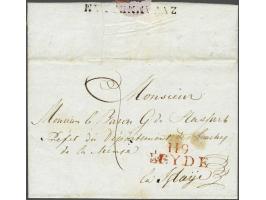 Monsieur
Monsieur le Baron G de Stassart
Préfet du Département de Bouches
de la Meuse
119
LEYDE
la Haije